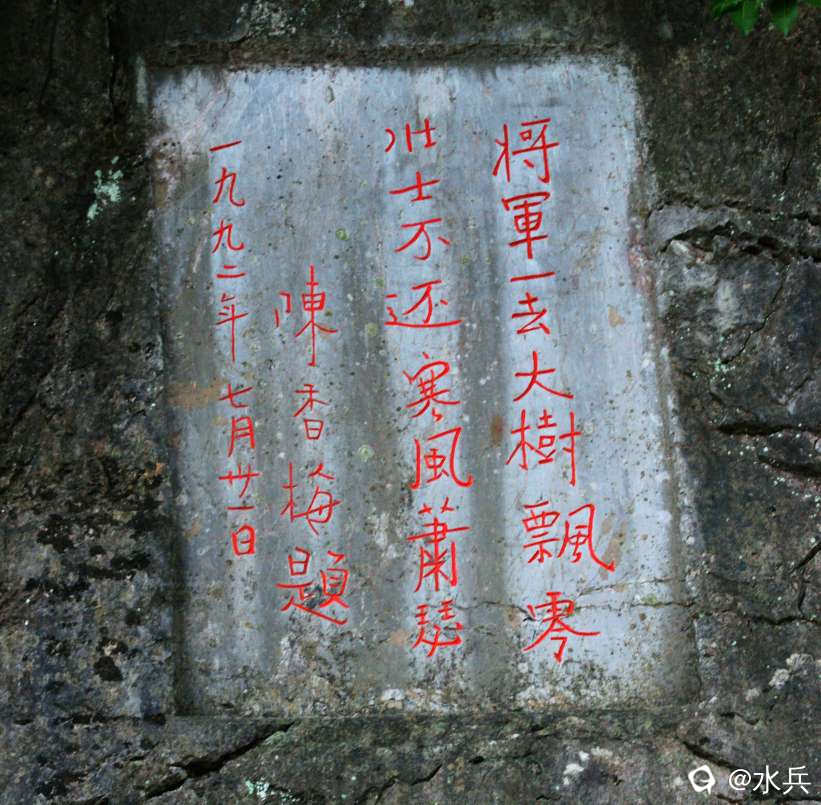 将軍一去大樹飄零
壮士不还寒風蕭瑟
陳香梅題
一九九二年七月卅一日
@水兵